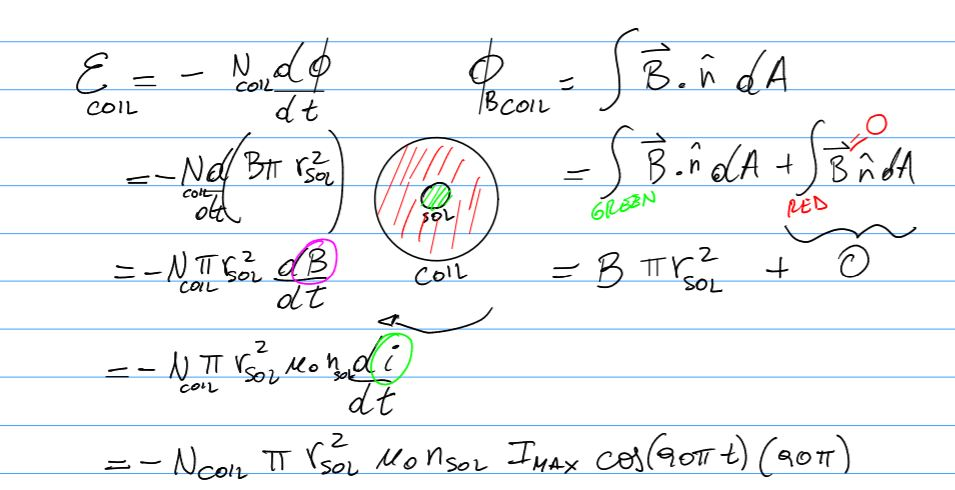 ℰ_COIL = - N_COIL dϕ/dt    ϕ_B COIL = ∫ B⃗ . n̂ dA
= - N_COIL d/dt (Bπ r²_SOL)    SOL    = ∫_GREEN B⃗ . n̂ dA + ∫_RED B⃗ n̂ dA = 0
= - N_COIL π r²_SOL dB/dt    COIL    = B π r²_SOL + 0
= - N_COIL π r²_SOL μ₀ n_SOL di/dt
= - N_COIL π r²_SOL μ₀ n_SOL I_MAX cos(90π t) (90π)